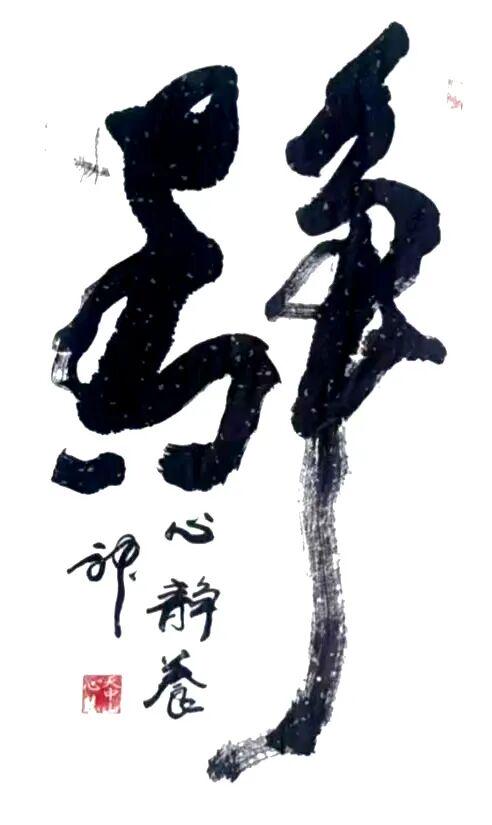 静
心静养
神